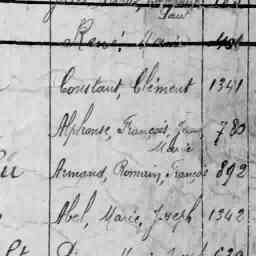 Paul
René, Marie
Constant, Clément 1341
Alphonse, François, Jean, 780
Marie
Armand, Romain, François 892
Abel, Marie, Joseph 1342